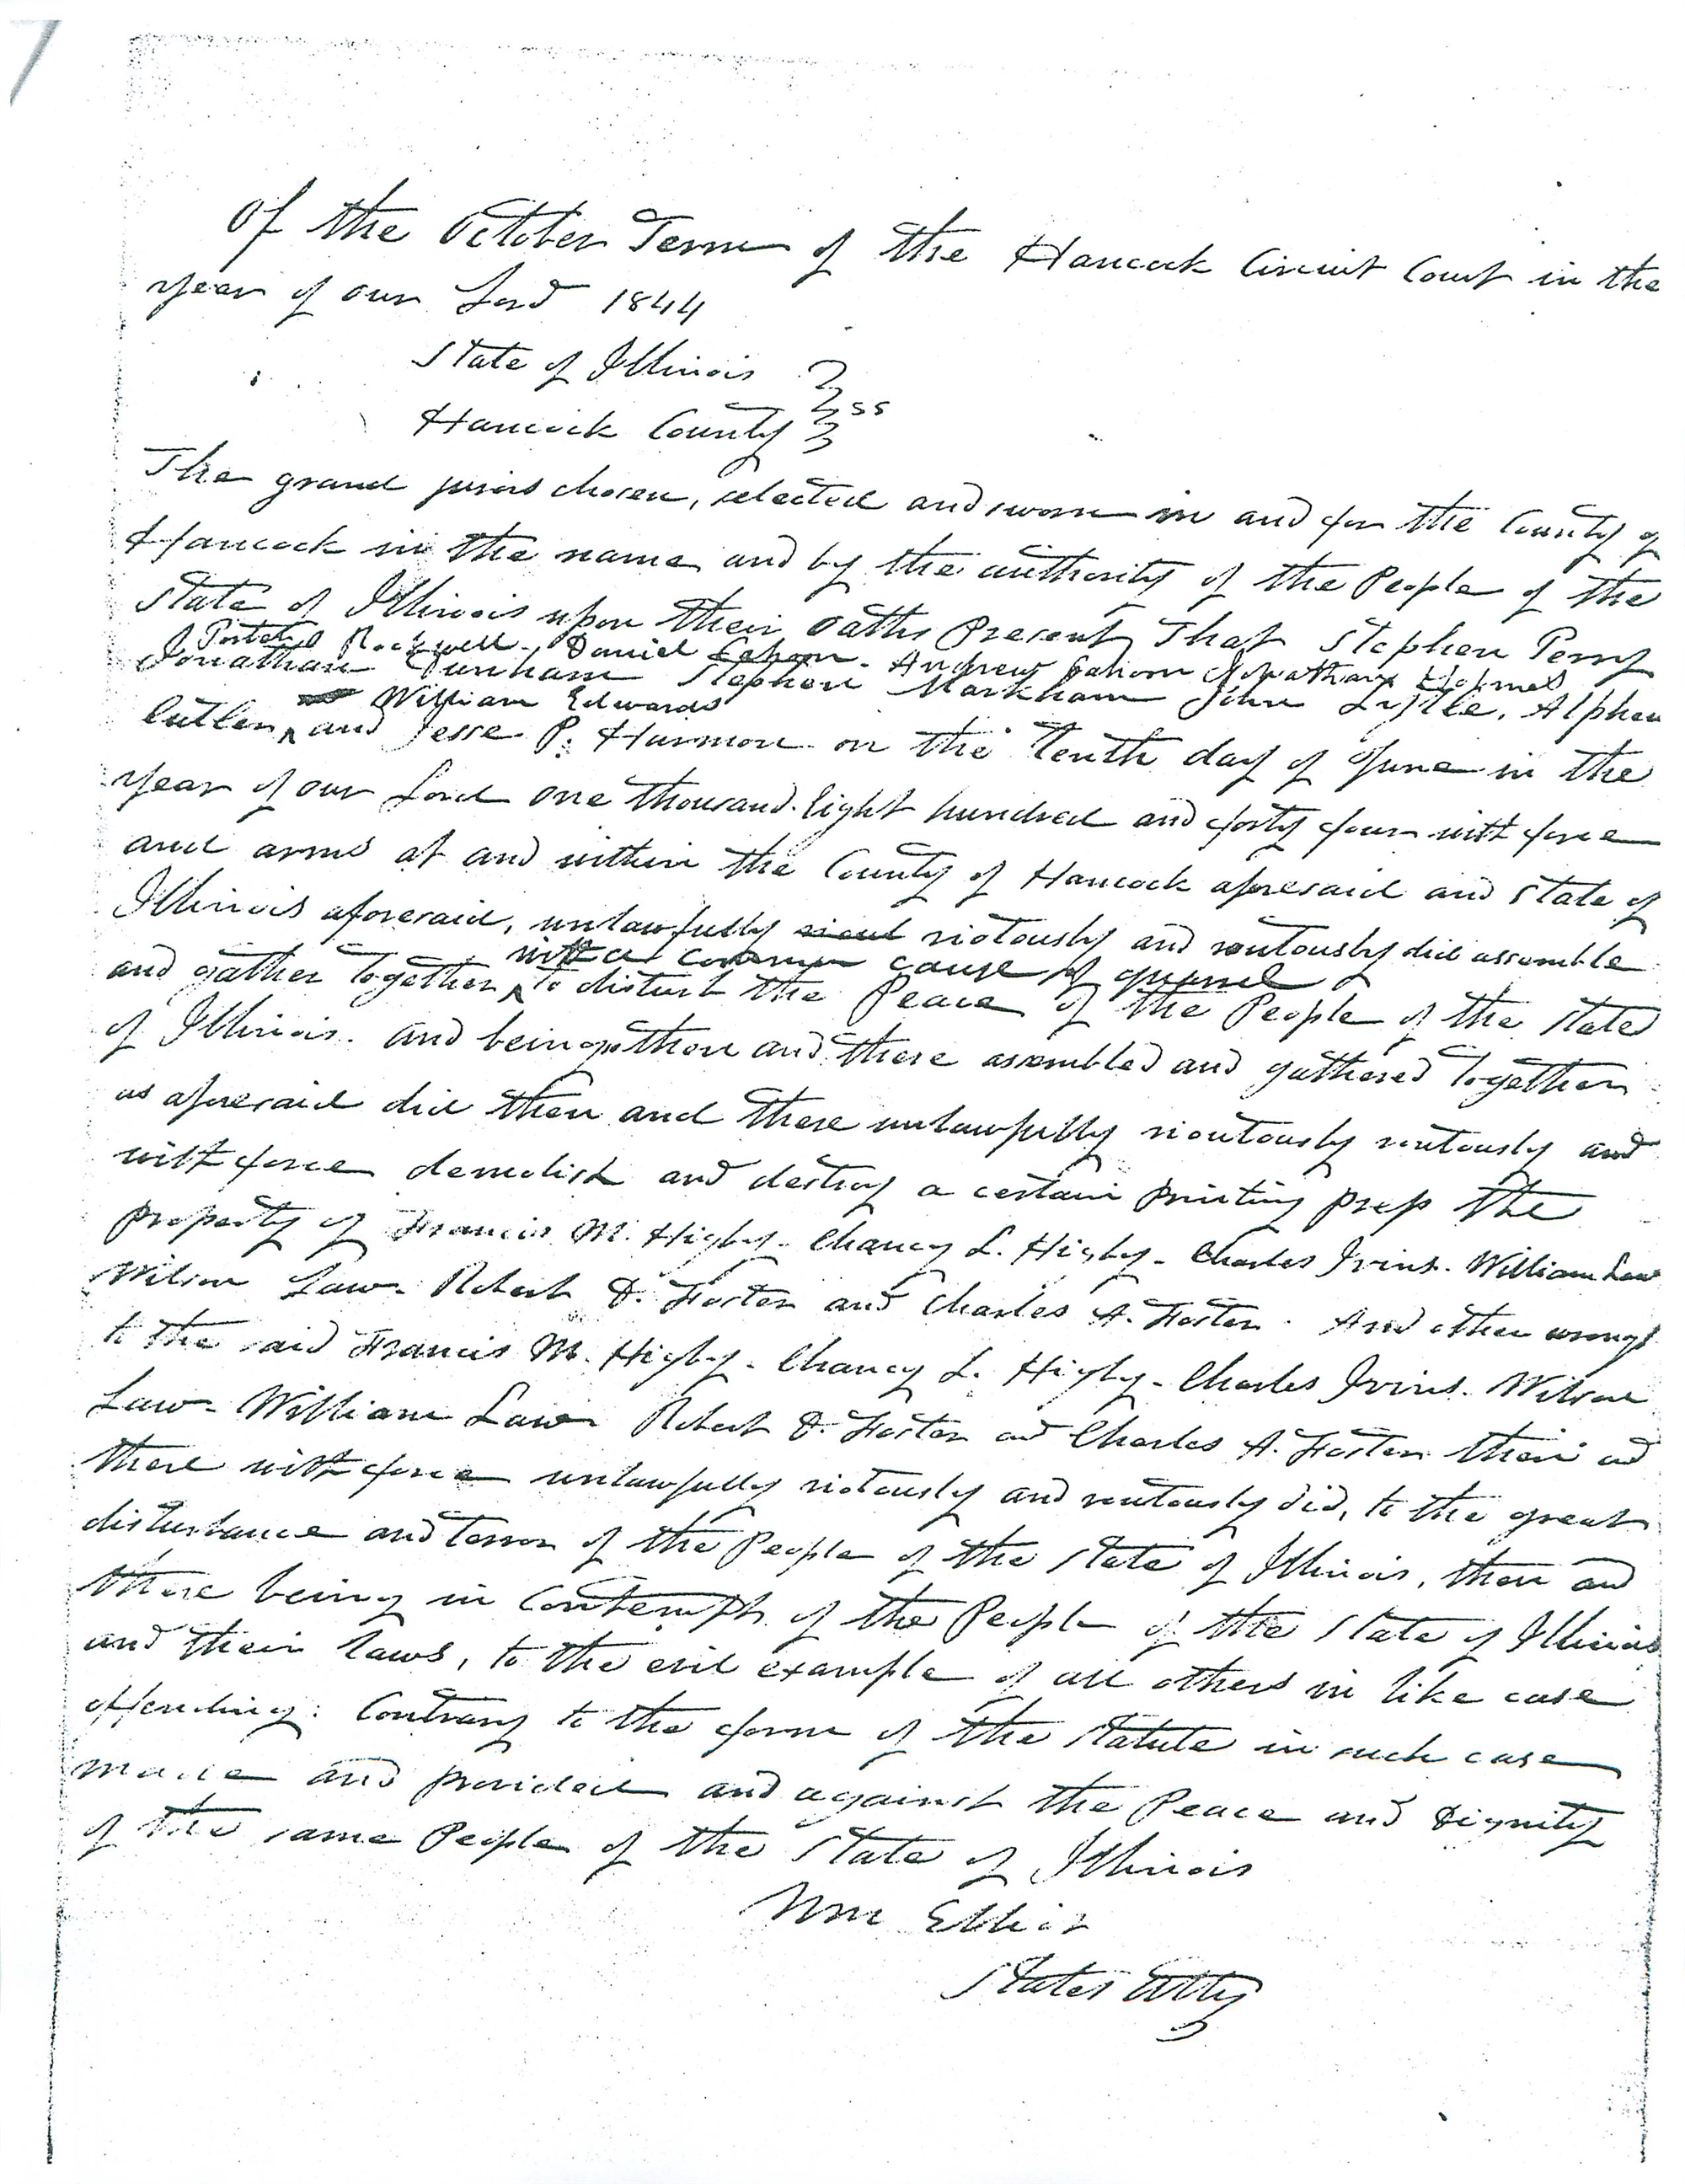 7
Of the October Term of the Hancock Circuit Court in the
year of our Lord 1844
State of Illinois
Hancock County } ss
The grand jurors chosen, selected and sworn in and for the County of
Hancock in the name and by the authority of the People of the
State of Illinois upon their oaths Present That Stephen Perry
Rockwell. Daniel Cahoon. Andrew Cahoon Jonathan Holmes
Jonathan Dunham Stephen Markham John Lytle, Alpheus
William Edwards
Cutler ^ and Jesse P. Harmon on the tenth day of June in the
year of our Lord one thousand Eight hundred and forty four with force
and arms at and within the County of Hancock aforesaid and State of
Illinois aforesaid, unlawfully riotously and routously did assemble
with a common cause of quarrel
and gather together ^ to disturb the Peace of the People of the State
of Illinois. and being then and there assembled and gathered together
as aforesaid did then and there unlawfully rioutously routously and
with force demolish and destroy a certain printing press the
property of Francis M. Higby. Chancy L. Higby. Charles Ivins. William Law
Wilson Law. Robert D. Foster and Charles A. Foster. And other wrongs
to the said Francis M. Higby. Chancy L. Higby. Charles Ivins. Wilson
Law. William Law Robert D. Foster and Charles A. Foster then and
there with force unlawfully riotously and routously did, to the great
disturbance and terror of the People of the State of Illinois, then and
there being in Contempt of the People of the State of Illinois
and their laws, to the evil example of all others in like case
offending: Contrary to the form of the Statute in such case
made and provided and against the Peace and Dignity
of the same People of the State of Illinois
Wm Elliot
States Atty